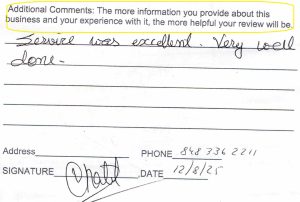 Additional Comments: The more information you provide about this
business and your experience with it, the more helpful your review will be.
Service was excellent. Very well
done.
Address PHONE 848 336 2211
SIGNATURE DATE 12/8/25